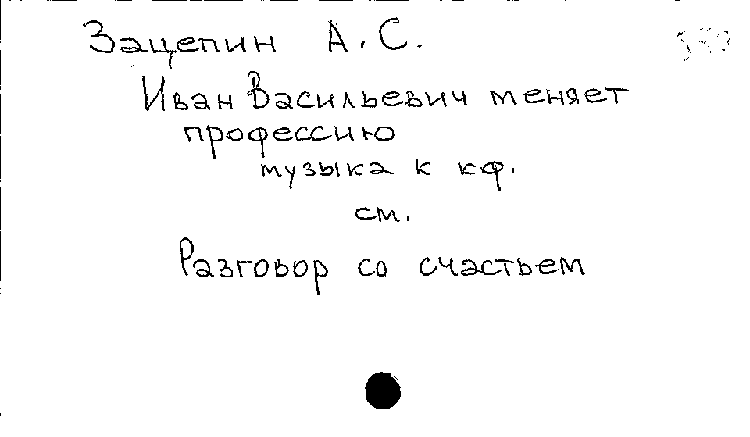 Зацепин А.С.
Иван Васильевич меняет
профессию
музыка к кф.
см.
Разговор со счастьем